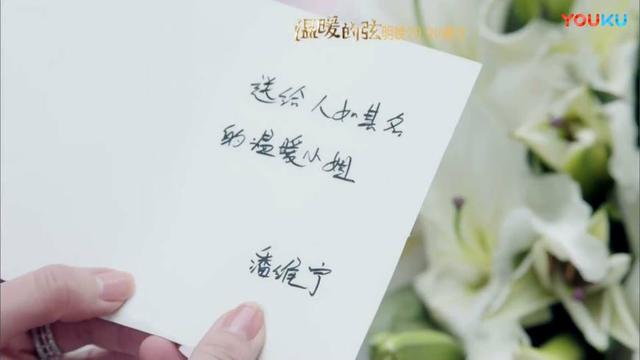 YOUKU
温暖的弦
送给人如其名
的温暖小姐
潘维宁